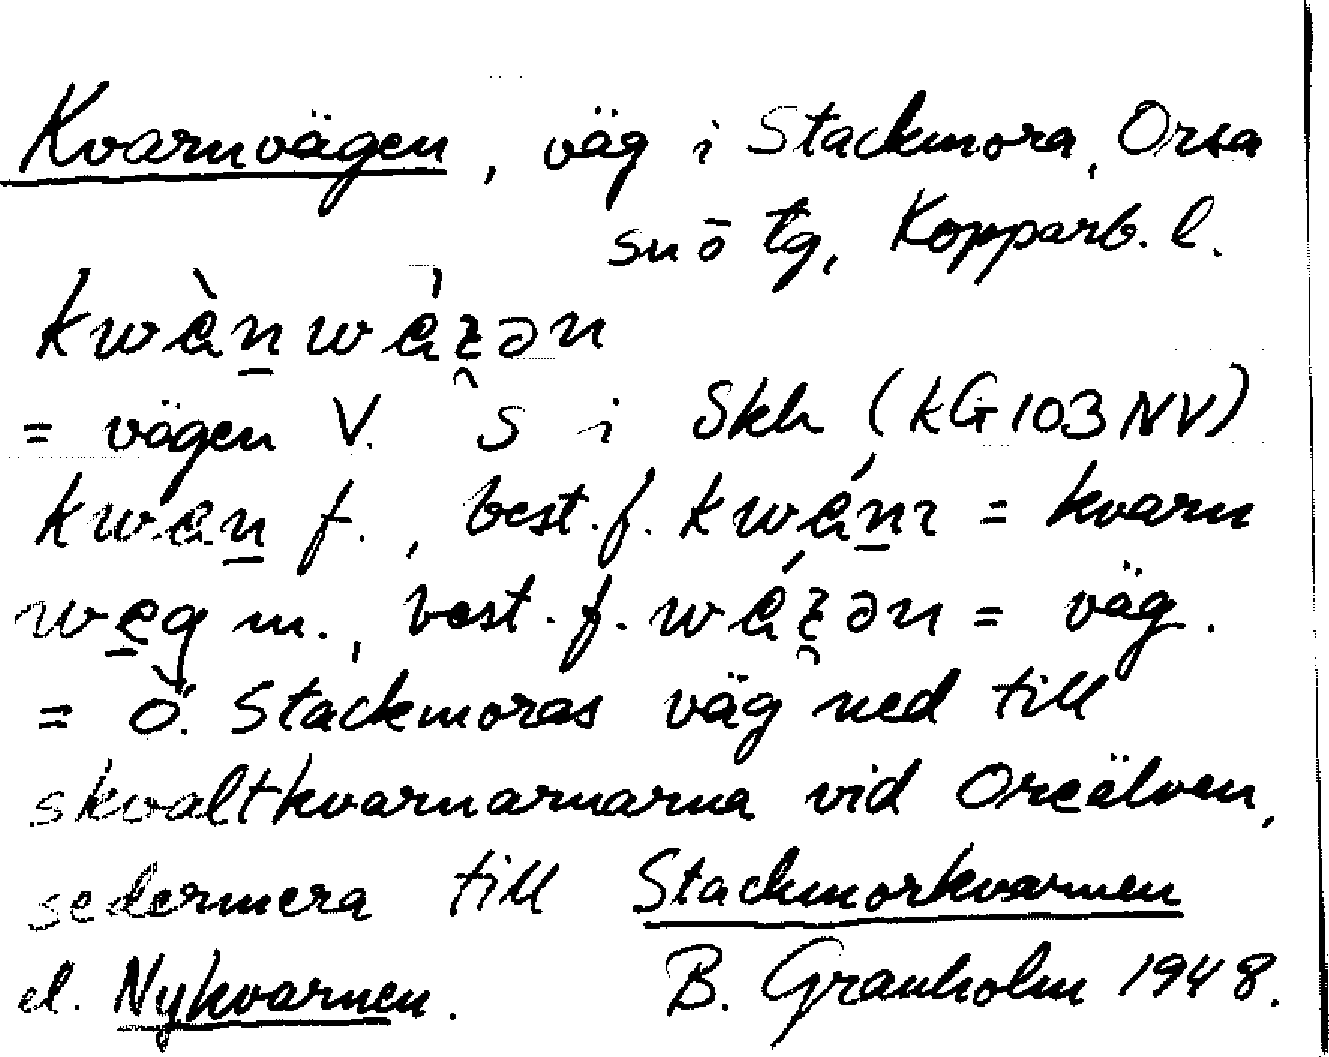 Kvarnvägen, väg i Stackmora, Orsa
sn ō tg, Kopparb. l.
kwὲn̠wέʒən
= vägen V. S i Skh (KG 103 NV)
kwɛn̠ f., best. f. kwέn̠ɿ = kvarn
wɛ̠g m., best. f. wέʒən = väg.
= Ö. Stackmoras väg ned till
skvaltkvarnarnarna vid Oreälven,
sedermera till Stackmorkvarnen
el. Nykvarnen. B. Granholm 1948.